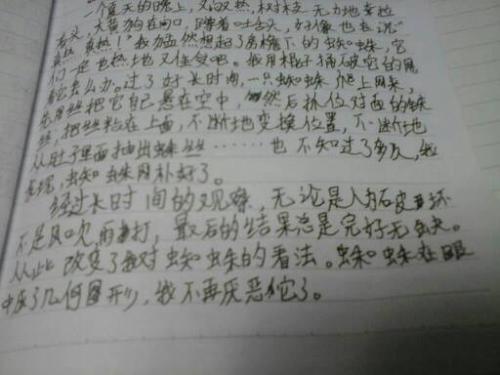 一个夏天的晚上，又闷又热，树枝无力地耷拉
着头，大黄狗在门口，蹲着吐舌头，好像也在说"
真热 真热！"我猛然想起了房檐下的蜘蛛，它
们一定也热地又住食吧。我用棍子捅破它的网
看它怎么办。过了好长时间，一只蜘蛛爬上网来，
先用丝把它自己悬在空中，然后抓住对面的蛛
丝，把丝粘在上面，不断地变换位置，不断地
从肚子里面抽出蛛丝……也不知过了多久，我
发现，蜘蛛网补好了。
经过长时间的观察，无论是人为破坏
不是风吹雨打，最后的结果总是完好无缺。
从此改变了我对蜘蛛的看法。蜘蛛在眼
中成了几何图形，我不再厌恶它了。